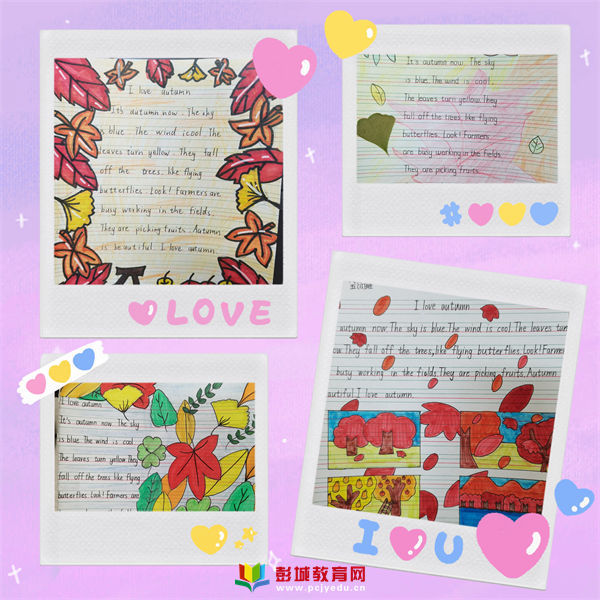 I love autumn
It's autumn now. The sky
is blue. The wind icool. The
leaves turn yellow. They fall
off the trees. like flying
butterflies. Look! Farmers are
busy working in the fields.
They are picking fruits. Autumn
is beautiful. I love autumn.
LOVE
It's autumn now. The sky
is blue. The wind is cool.
The leaves turn yellow. They
fall off the trees, like flying
butterflies. Look! Farmers
are busy working in the fields.
They are picking fruits.
I love autumn
It's autumn now. The sky
is blue. The wind is cool.
The leaves turn yellow. They
fall off the trees like flying
butterflies. Look! Farmers are
I love autumn
autumn now. The sky is blue. The wind is cool. The leaves turn
They fall off the trees, like flying butterflies. Look! Farm
busy working in the fields. They are picking fruits. Autumn
I love autumn.
I U
彭城教育网
www.pcjyedu.cn